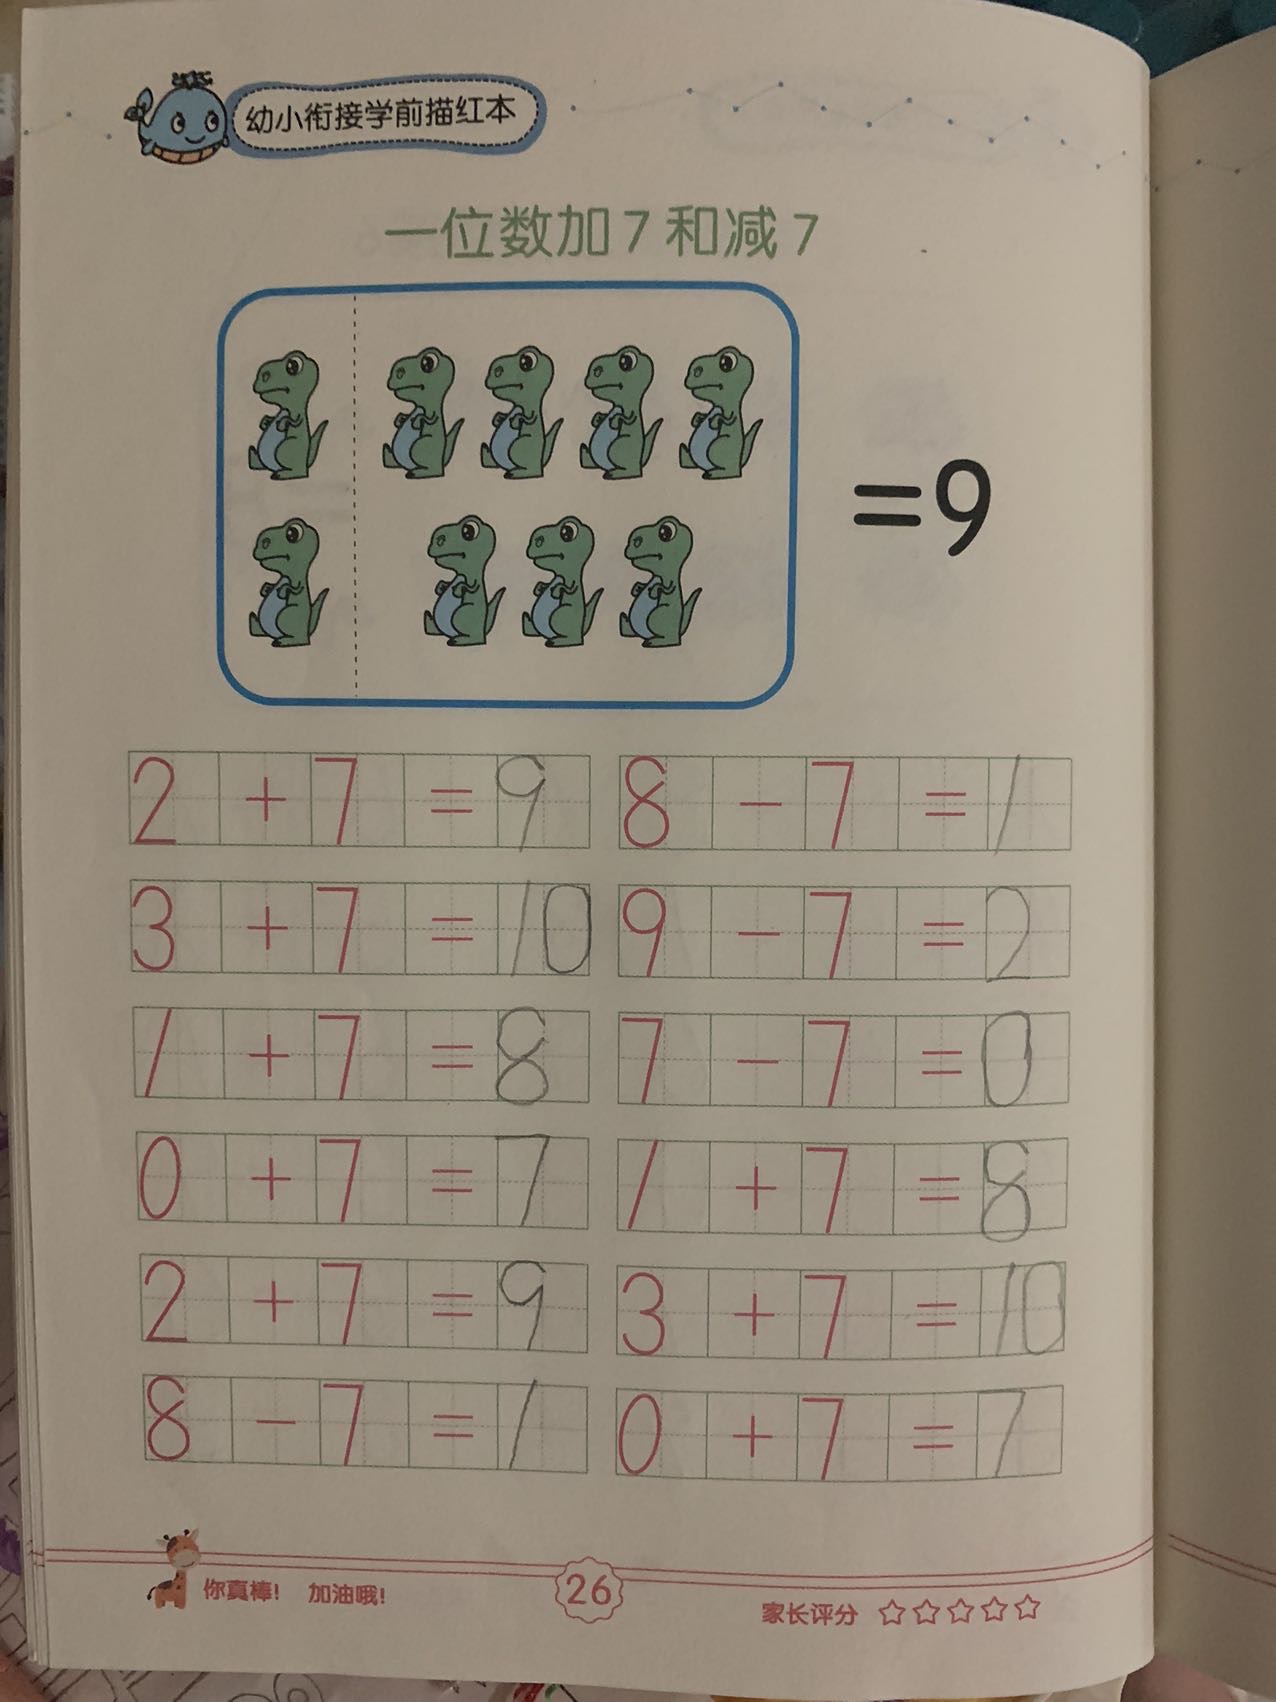 幼小衔接学前描红本
一位数加7和减7
=9
2+7=9 8-7=1
3+7=10 9-7=2
1+7=8 7-7=0
0+7=7 1+7=8
2+7=9 3+7=10
8-7=1 0+7=7
你真棒! 加油哦! 26 家长评分 ☆☆☆☆☆